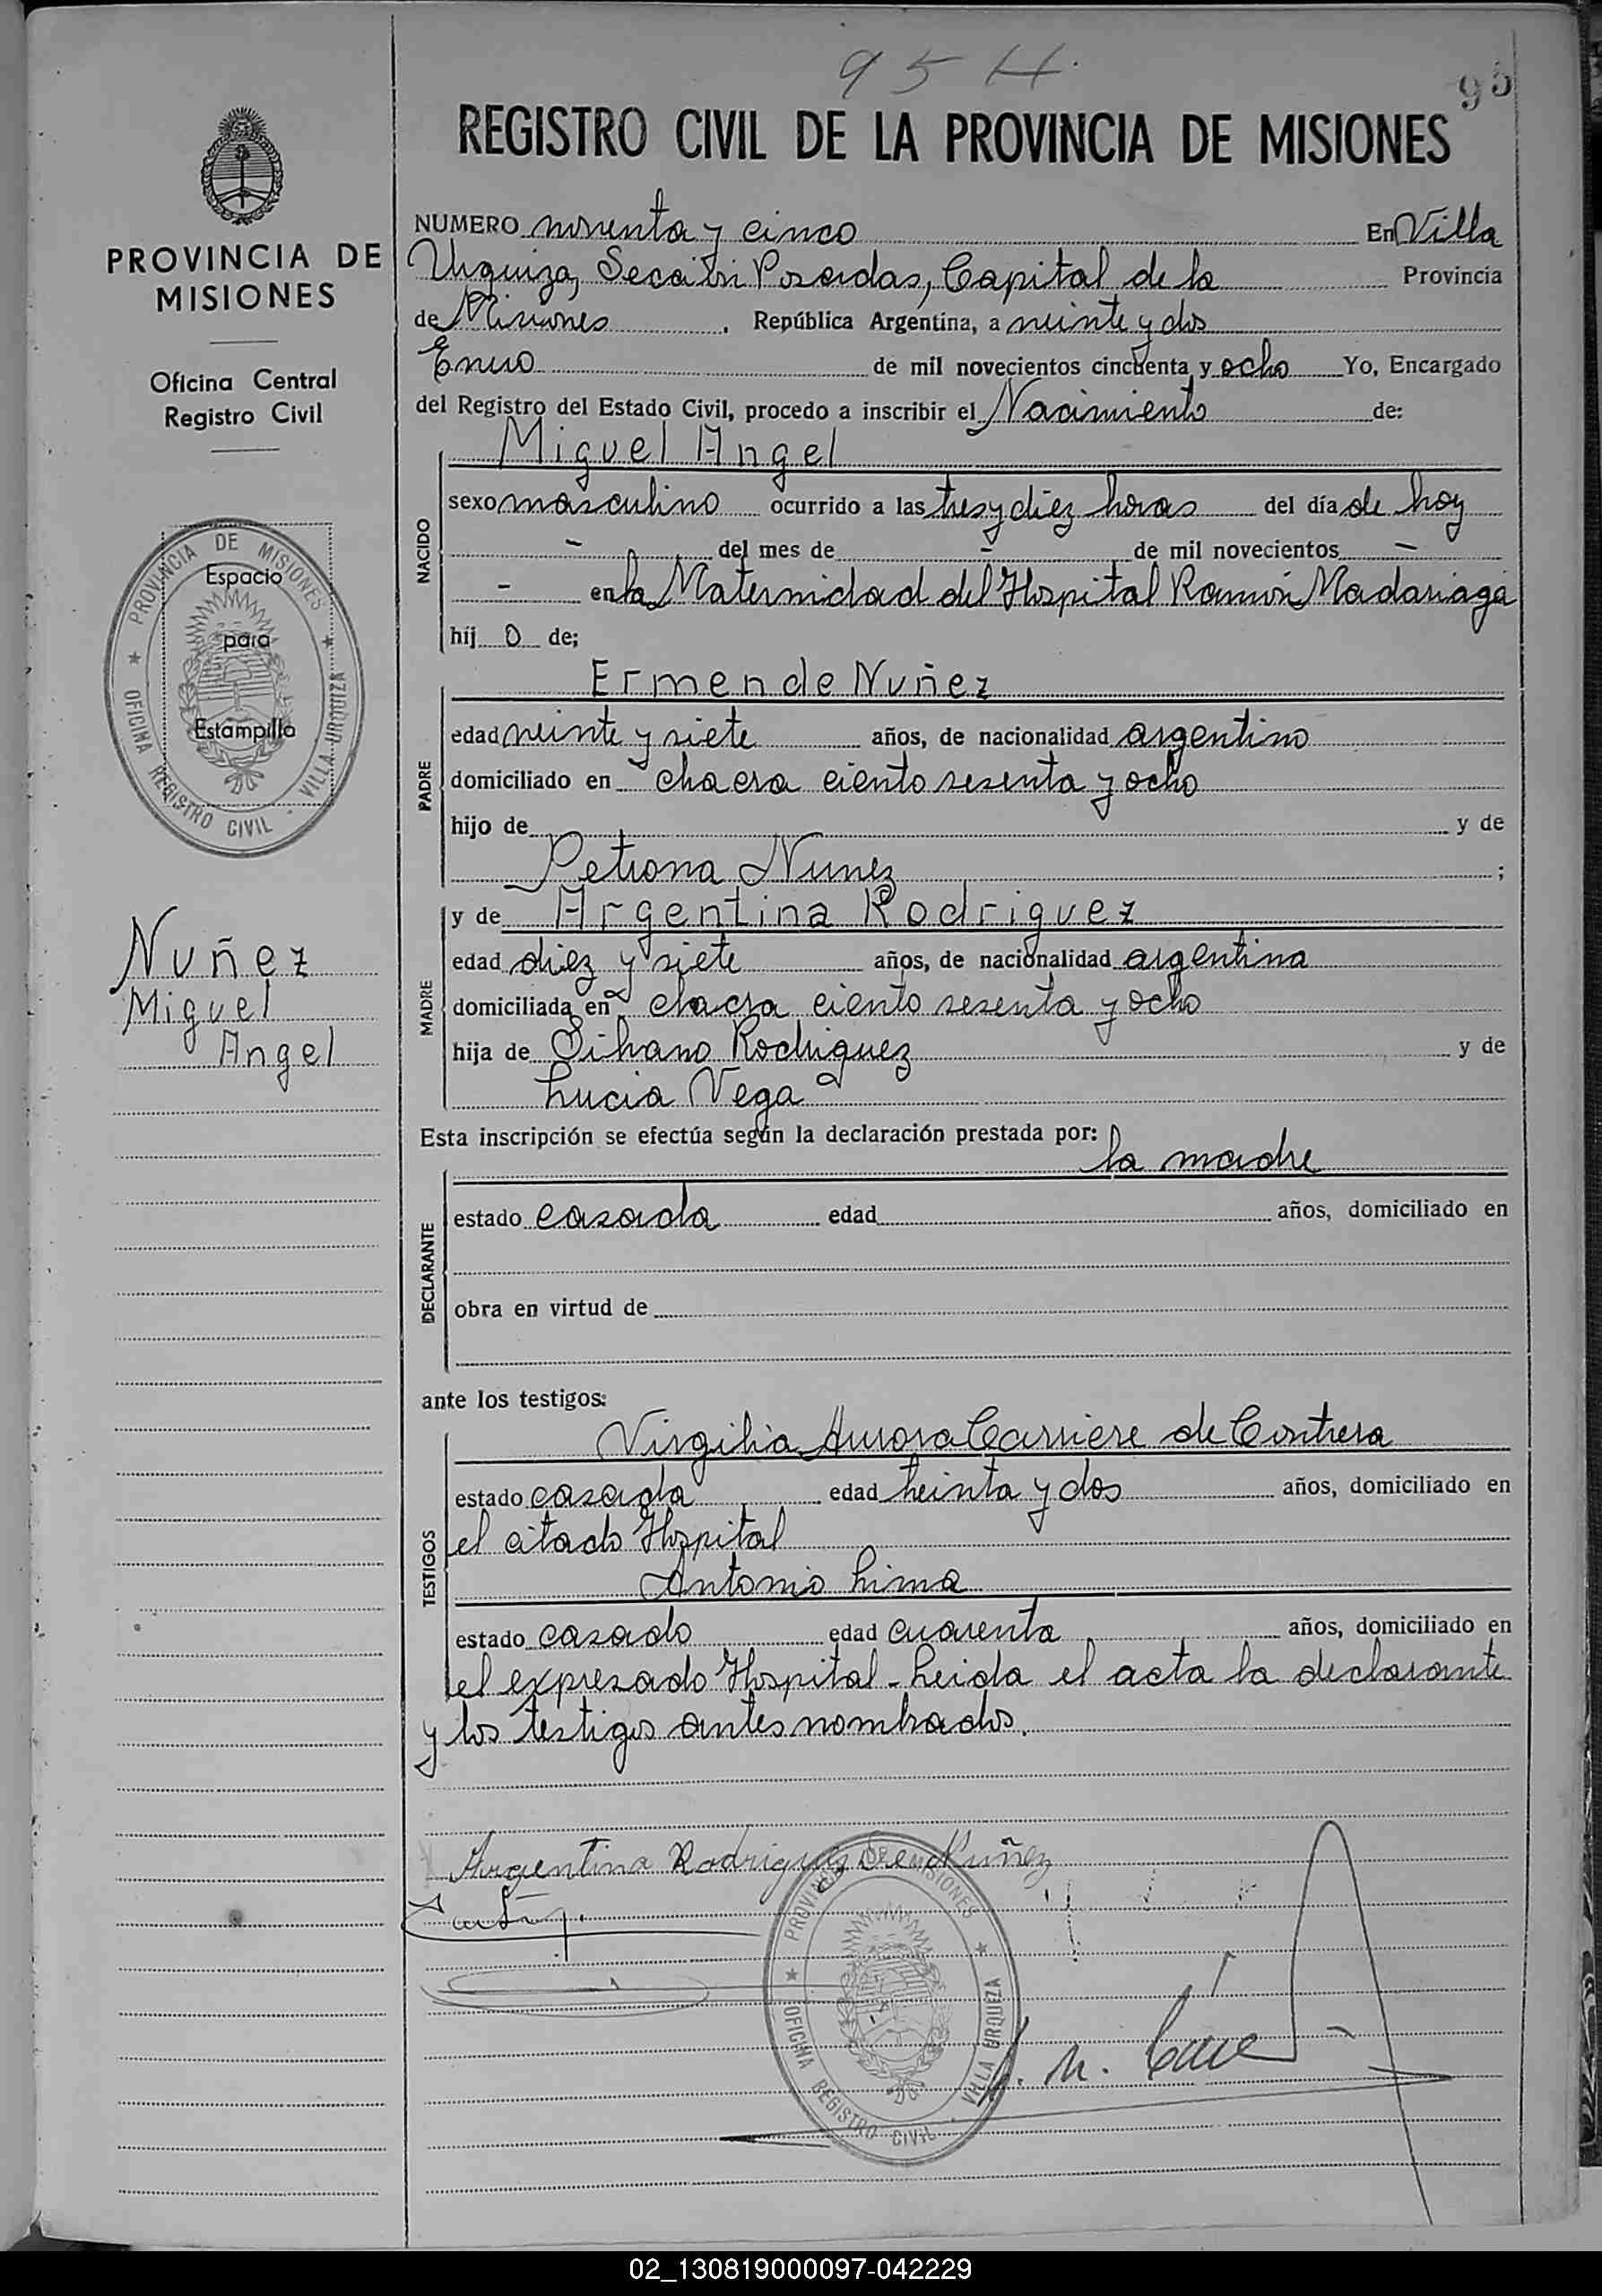 95 H.
95
REGISTRO CIVIL DE LA PROVINCIA DE MISIONES
PROVINCIA DE
MISIONES
Oficina Central
Registro Civil
PROVINCIA DE MISIONES
OFICINA REGISTRO CIVIL - VILLA URQUIZA
Espacio
para
Estampilla
Nuñez
Miguel
Angel
NUMERO noventa y cinco En Villa
Urquiza, Sección Posadas, Capital de la Provincia
de Misiones, República Argentina, a veinte y dos
Enero de mil novecientos cincuenta y ocho Yo, Encargado
del Registro del Estado Civil, procedo a inscribir el Nacimiento de:
NACIDO
Miguel Angel
sexo masculino ocurrido a las tres y diez horas del día de hoy
- del mes de - de mil novecientos -
- en la Maternidad del Hospital Ramón Madariaga
hij o de;
PADRE
Ermende Nuñez
edad veinte y siete años, de nacionalidad argentino
domiciliado en chacra ciento sesenta y ocho
hijo de y de
Petrona Nunez ;
MADRE
y de Argentina Rodriguez
edad diez y siete años, de nacionalidad argentina
domiciliada en chacra ciento sesenta y ocho
hija de Silvano Rodriguez y de
Lucia Vega
Esta inscripción se efectúa según la declaración prestada por:
la madre
DECLARANTE
estado casada edad años, domiciliado en
obra en virtud de
ante los testigos:
TESTIGOS
Virgilia Aurora Carriere de Contrera
estado casada edad treinta y dos años, domiciliado en
el citado Hospital
Antonio Lima
estado casado edad cuarenta años, domiciliado en
el expresado Hospital - Leida el acta la declarante
y los testigos antes nombrados.
Argentina Rodriguez De Nuñez
PROVINCIA DE MISIONES
OFICINA REGISTRO CIVIL - VILLA URQUIZA
02_130819000097-042229